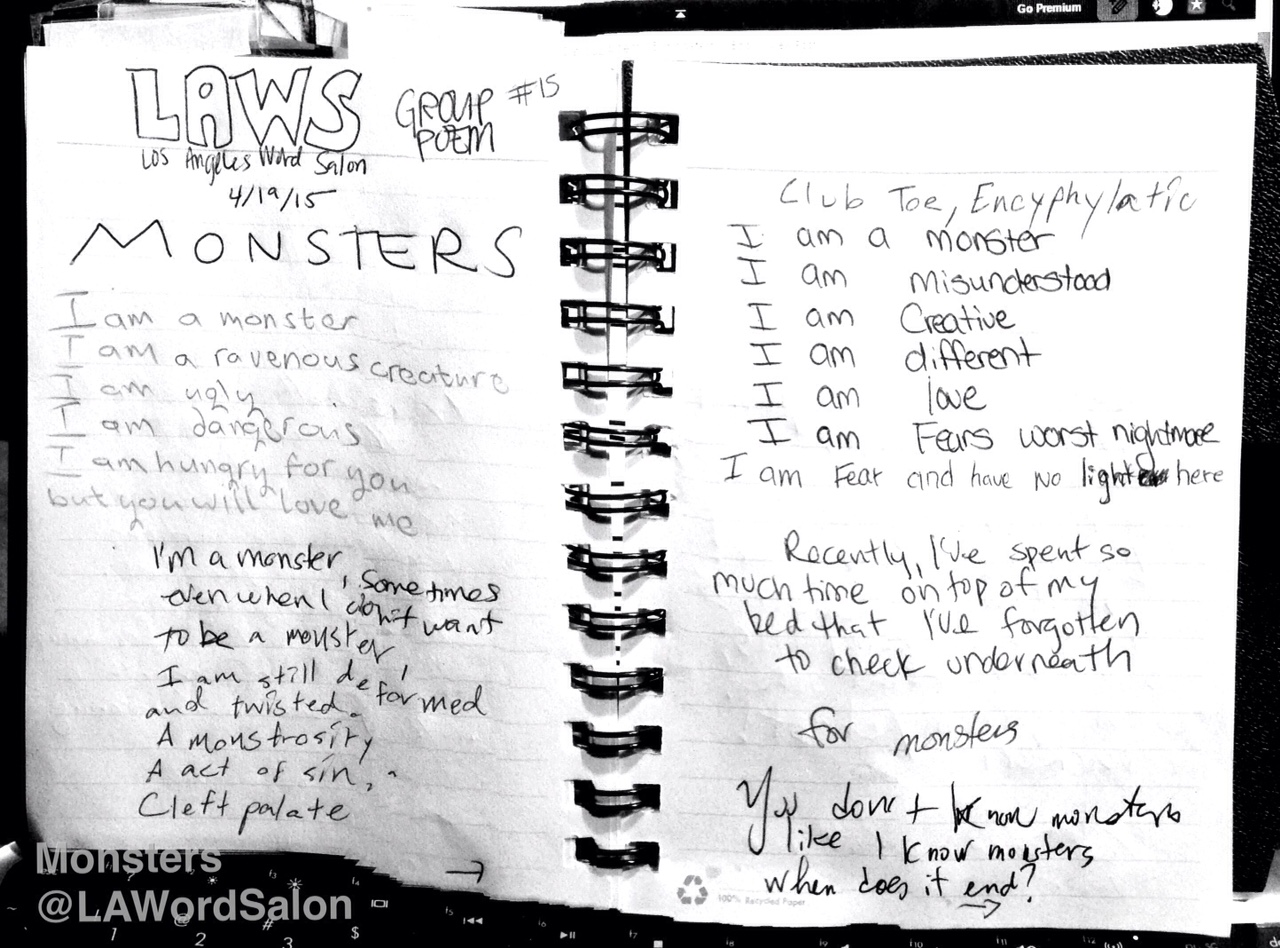 Go Premium
LAWS
GROUP
POEM
#15
Los Angeles Word Salon
4/19/15
MONSTERS
I am a monster
I am a ravenous creature
I am ugly
I am dangerous
I am hungry for you
but you will love me
I'm a monster
even when I, sometimes
don't want
to be a monster,
I am still deformed
and twisted.
A monstrosity
A act of sin,
Cleft palate
→
Club Toe, Encyphylatic
I am a monster
I am Misunderstood
I am Creative
I am different
I am love
I am Fears worst nightmare
I am Fear and have no light here
Recently, I've spent so
much time on top of my
bed that I've forgotten
to check underneath
for monsters
You don't know monsters
like I know monsters
when does it end?
→
100% Recycled Paper
Monsters
@LAWordSalon
1 2 3 $
#
@